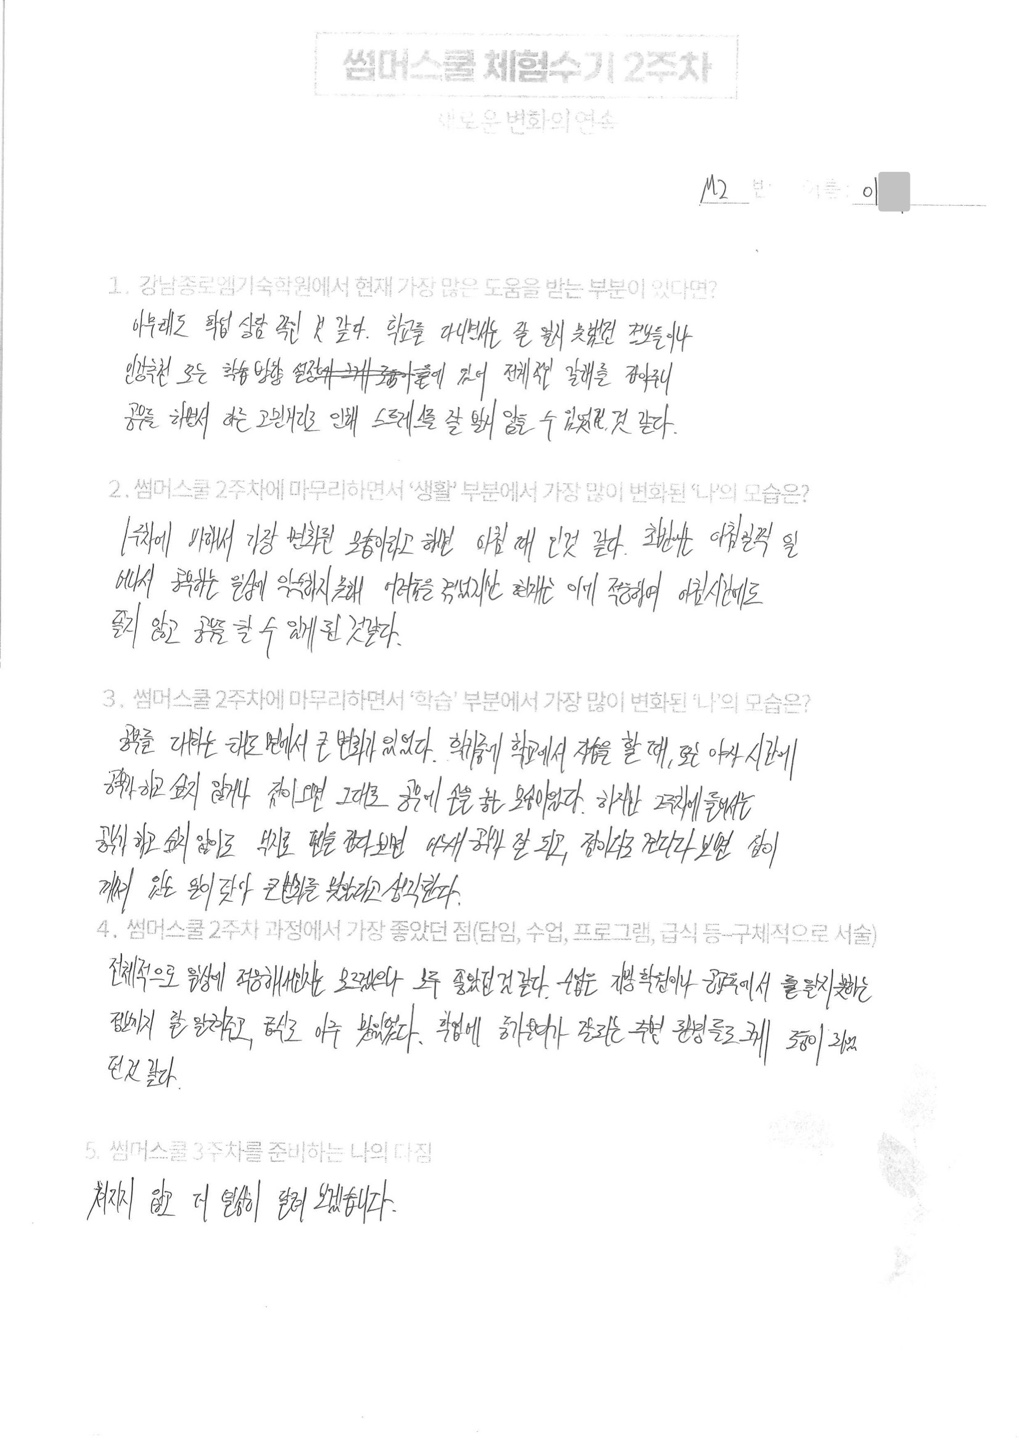 썸머스쿨 체험수기 2주차
새로운 변화의 연속
M2 반 이름: 이
1. 강남종로엠기숙학원에서 현재 가장 많은 도움을 받는 부분이 있다면?
아무래도 학업 상담 쪽인 것 같다. 학교를 다니면서는 잘 얻지 못했던 정보들이나
인강추천 또는 학습 방향 설정에 있어 전체적인 갈래를 잡아주니
공부를 하면서 하는 고민거리로 인해 스트레스를 잘 받지 않을 수 있었던 것 같다.
2. 썸머스쿨 2주차에 마무리하면서 '생활' 부분에서 가장 많이 변화된 '나'의 모습은?
1주차에 비해서 가장 변화된 모습이라고 하면 아침 때 인것 같다. 초반에는 아침일찍 일
어나서 공부하는 일상에 익숙하지 못해 어려움을 겪었지만 현재는 이에 적응하여 아침시간에도
졸지 않고 공부를 할 수 있게 된 것같다.
3. 썸머스쿨 2주차에 마무리하면서 '학습' 부분에서 가장 많이 변화된 '나'의 모습은?
공부를 대하는 태도 면에서 큰 변화가 있었다. 학기중에 학교에서 자습을 할 때, 또는 야자 시간에
공부가 하고 싶지 않거나 잠이 오면 그대로 공부에 손을 놓는 모습이었다. 하지만 2주차에 들어서는
공부가 하고 싶지 않아도 억지로 펜을 잡다 보면 어느새 공부가 잘 되고, 잠이와도 견디다 보면 잠이
깨어 있는 일이 잦아 큰 변화를 맞았다고 생각한다.
4. 썸머스쿨 2주차 과정에서 가장 좋았던 점(담임, 수업, 프로그램, 급식 등-구체적으로 서술)
전체적으로 일상에 적응해서인지는 모르겠으나 모두 좋았던 것 같다. 수업은 지방 학원이나 공교육에서 다루지 못하는
점까지 잘 알려주고, 급식도 아주 맛있었다. 학업에 동기부여가 잘되는 주변 환경들도 크게 도움이 되었
던것 같다.
5. 썸머스쿨 3주차를 준비하는 나의 다짐
쳐지지 않고 더 열심히 달려 보겠습니다.